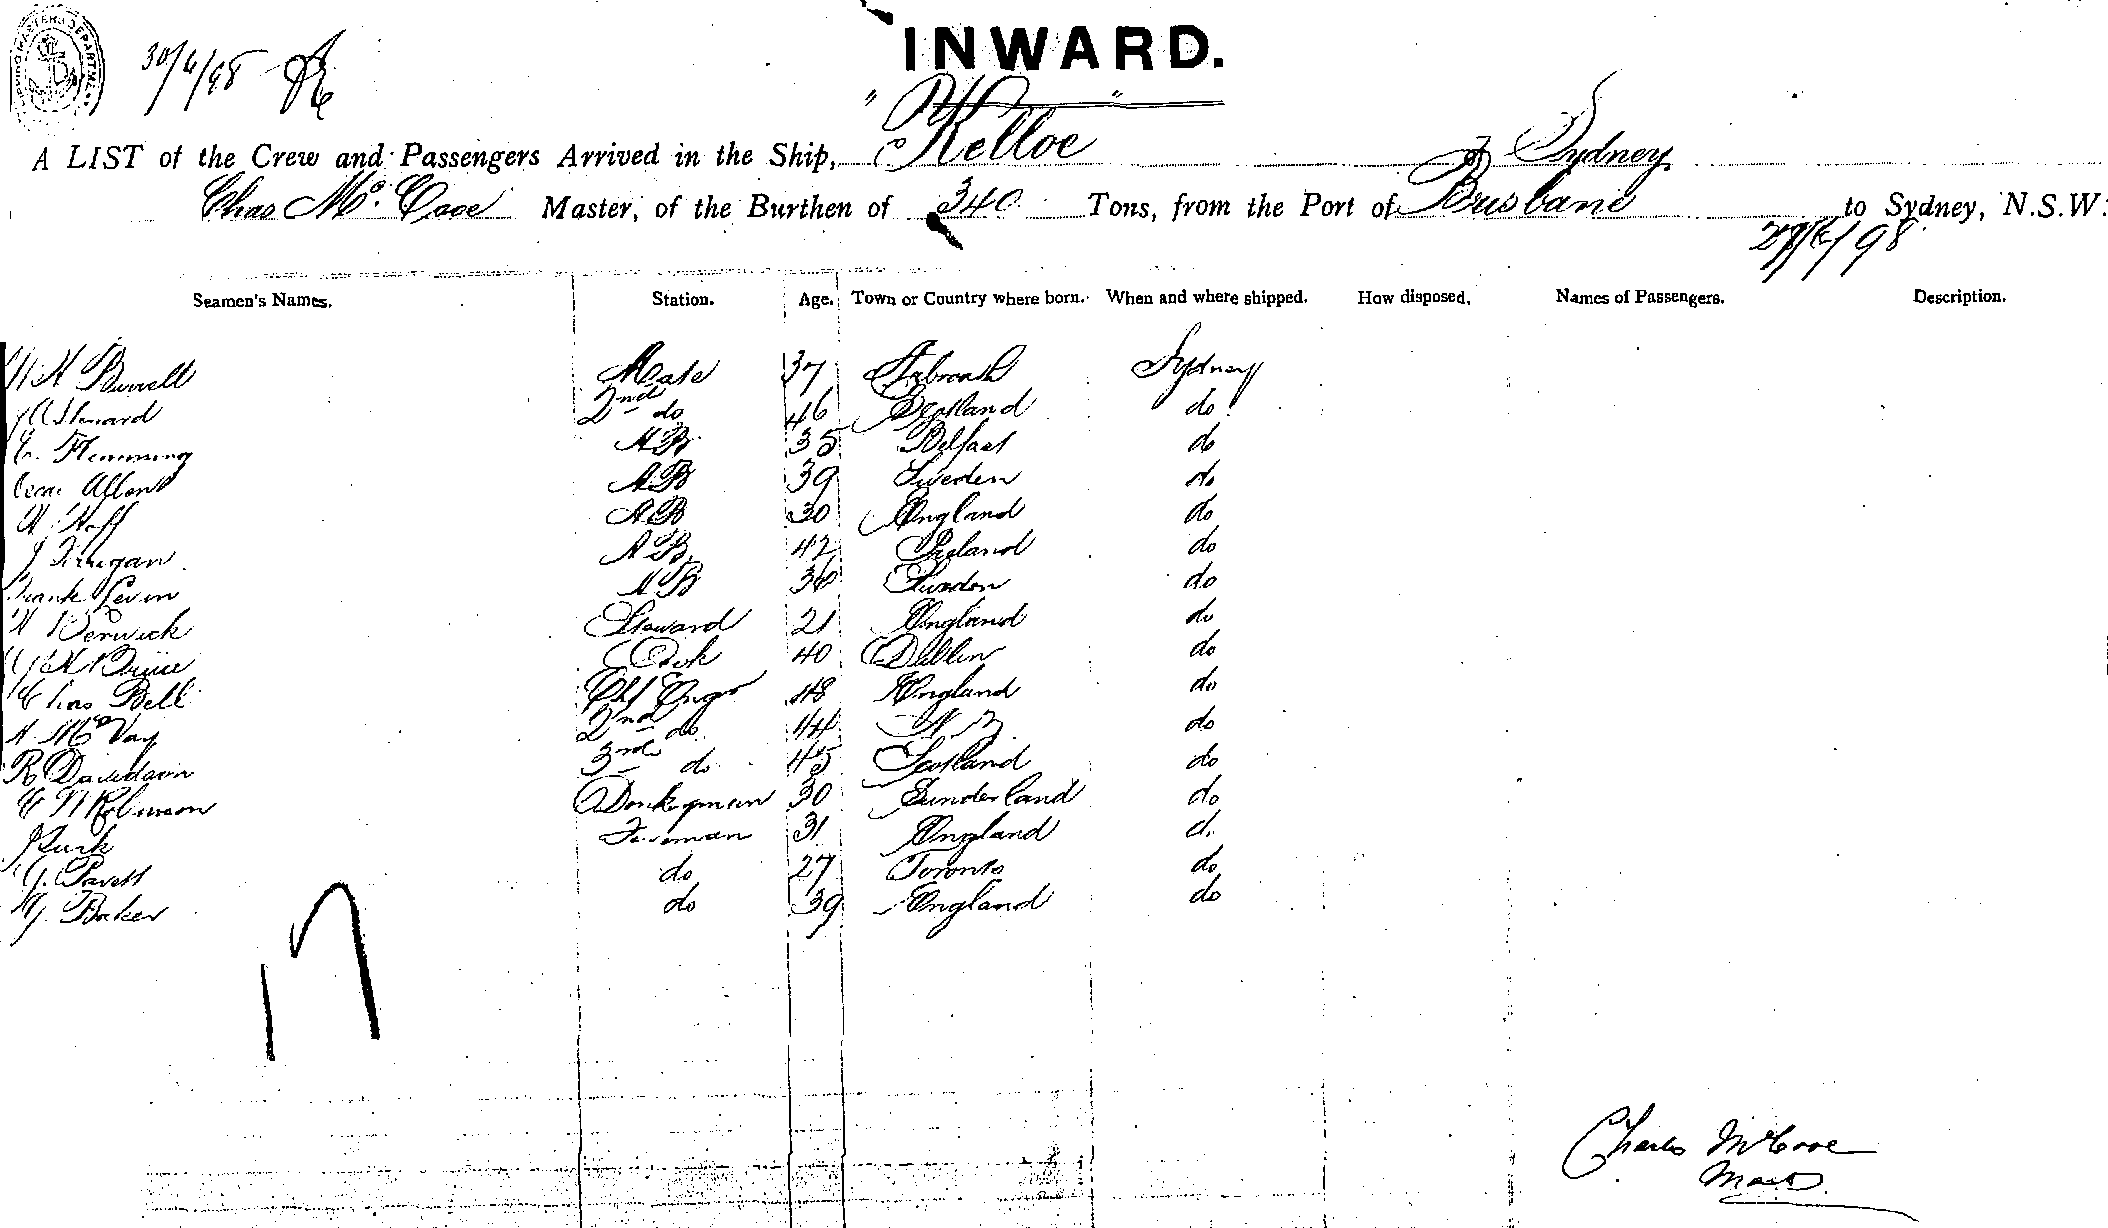 30/4/98
INWARD.
A LIST of the Crew and Passengers Arrived in the Ship, "Kelloe" of Sydney
Chas Mc. Cooe Master, of the Burthen of 340 Tons, from the Port of Brisbane to Sydney, N.S.W:
/98
Seamen's Names. Station. Age. Town or Country where born. When and where shipped. How disposed. Names of Passengers. Description.
Burrell Mate 37 Arbroath Sydney
2nd do 46 Scotland do
Flemming AB 35 Belfast do
AB 39 Sweden do
AB 30 England do
J AB 42 Ireland do
Frank Levin AB 36 Sweden do
Berwick Steward 21 England do
Cook 40 Dublin do
Chas Bell Chf Engr 48 England do
McVay 2nd do 44 N Z do
R Davidson 3rd do 45 Scotland do
Robinson Donkeyman 30 Sunderland do
Fireman 31 England do
do 27 Toronto do
G. Baker do 39 England do
17
Charles McCooe